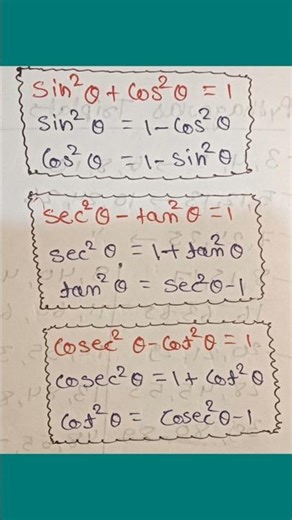 sin²θ + cos²θ = 1
sin²θ = 1 - cos²θ
cos²θ = 1 - sin²θ
sec²θ - tan²θ = 1
sec²θ = 1 + tan²θ
tan²θ = sec²θ - 1
cosec²θ - cot²θ = 1
cosec²θ = 1 + cot²θ
cot²θ = cosec²θ - 1